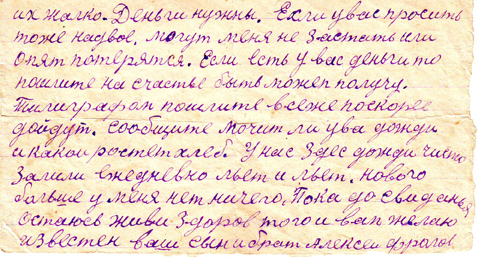 их жалко. Деньги нужны. Ехли у вас просить
тоже надвое, могут меня не застать или
опят потерятся. Если есть у вас деньги то
пошлите на счастье быть можеп получу.
Тилиграфап пошлите все же поскорее
дойдут. сообщите мочит ли у ва дожди
и какои ростет хлеб. У нас здес дожди чисто
залили ежедневно льет и льет. Нового
больше у меня нет ничего, Пока до свиданья
остаюсь жив и здоров того и вам желаю
известен ваш сын и брат Алексеи Фролов